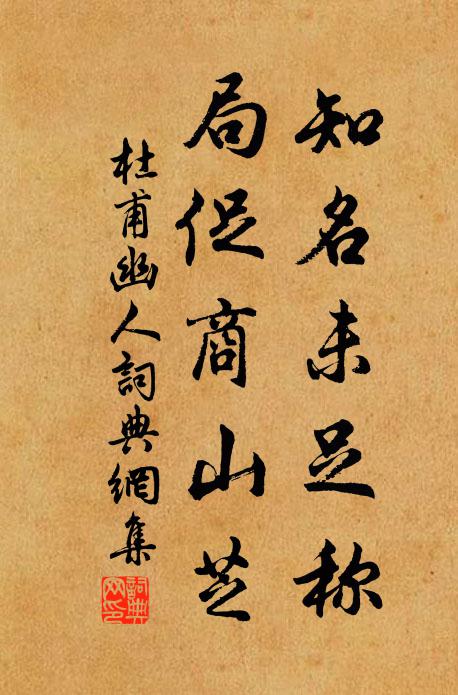 知名未足称
局促商山芝
杜甫幽人詞典網集
詞典网印